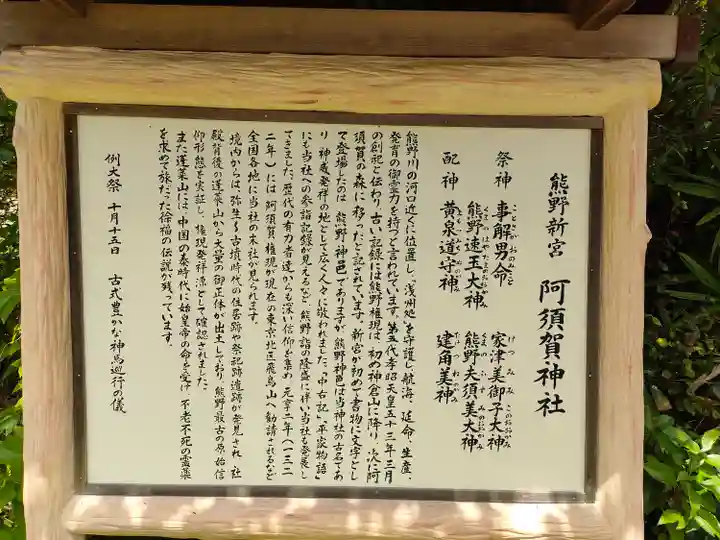 熊野新宮　阿須賀神社
祭神　事解男命　家津美御子大神
熊野速玉大神　熊野夫須美大神
配神　黄泉道守神　建角美神
熊野川の河口近くに位置し、浅州処を守護し、航海、延命、生産、
発育の御霊力を持つと言われています。第五代孝昭天皇五十三年三月
の創祀と伝わり、古い記録には熊野権現は、初め神倉山に降り、次に阿
須賀の森に移ったと記されています。新宮が初めて書物に文字とし
て登場したのは「熊野神邑」でありますが、熊野神邑は当神社の古名であ
り、神威発祥の地として広く人々に敬われました。「中右記」「平家物語」
にも当社への参詣記録が見えるなど、熊野詣の隆盛に伴い当社も発展し
てきました。歴代の有力者達からも深い信仰を集め、元亨二年（一三二
二年）には阿須賀権現が現在の東京北区飛鳥山へ勧請されるなど
全国各地に当社の末社が見られます。
境内からは、弥生〜古墳時代の住居跡や祭祀跡遺跡が発見され、社
殿背後の蓬莱山から大量の御正体が出土しており、熊野最古の原始信
仰形態を実証し、権現発祥源として確認されました。
また蓬莱山には、中国の秦時代に始皇帝の命を受け、不老不死の霊薬
を求めて旅だった徐福の伝説が残っています。
例大祭　十月十五日　古式豊かな神馬巡行の儀